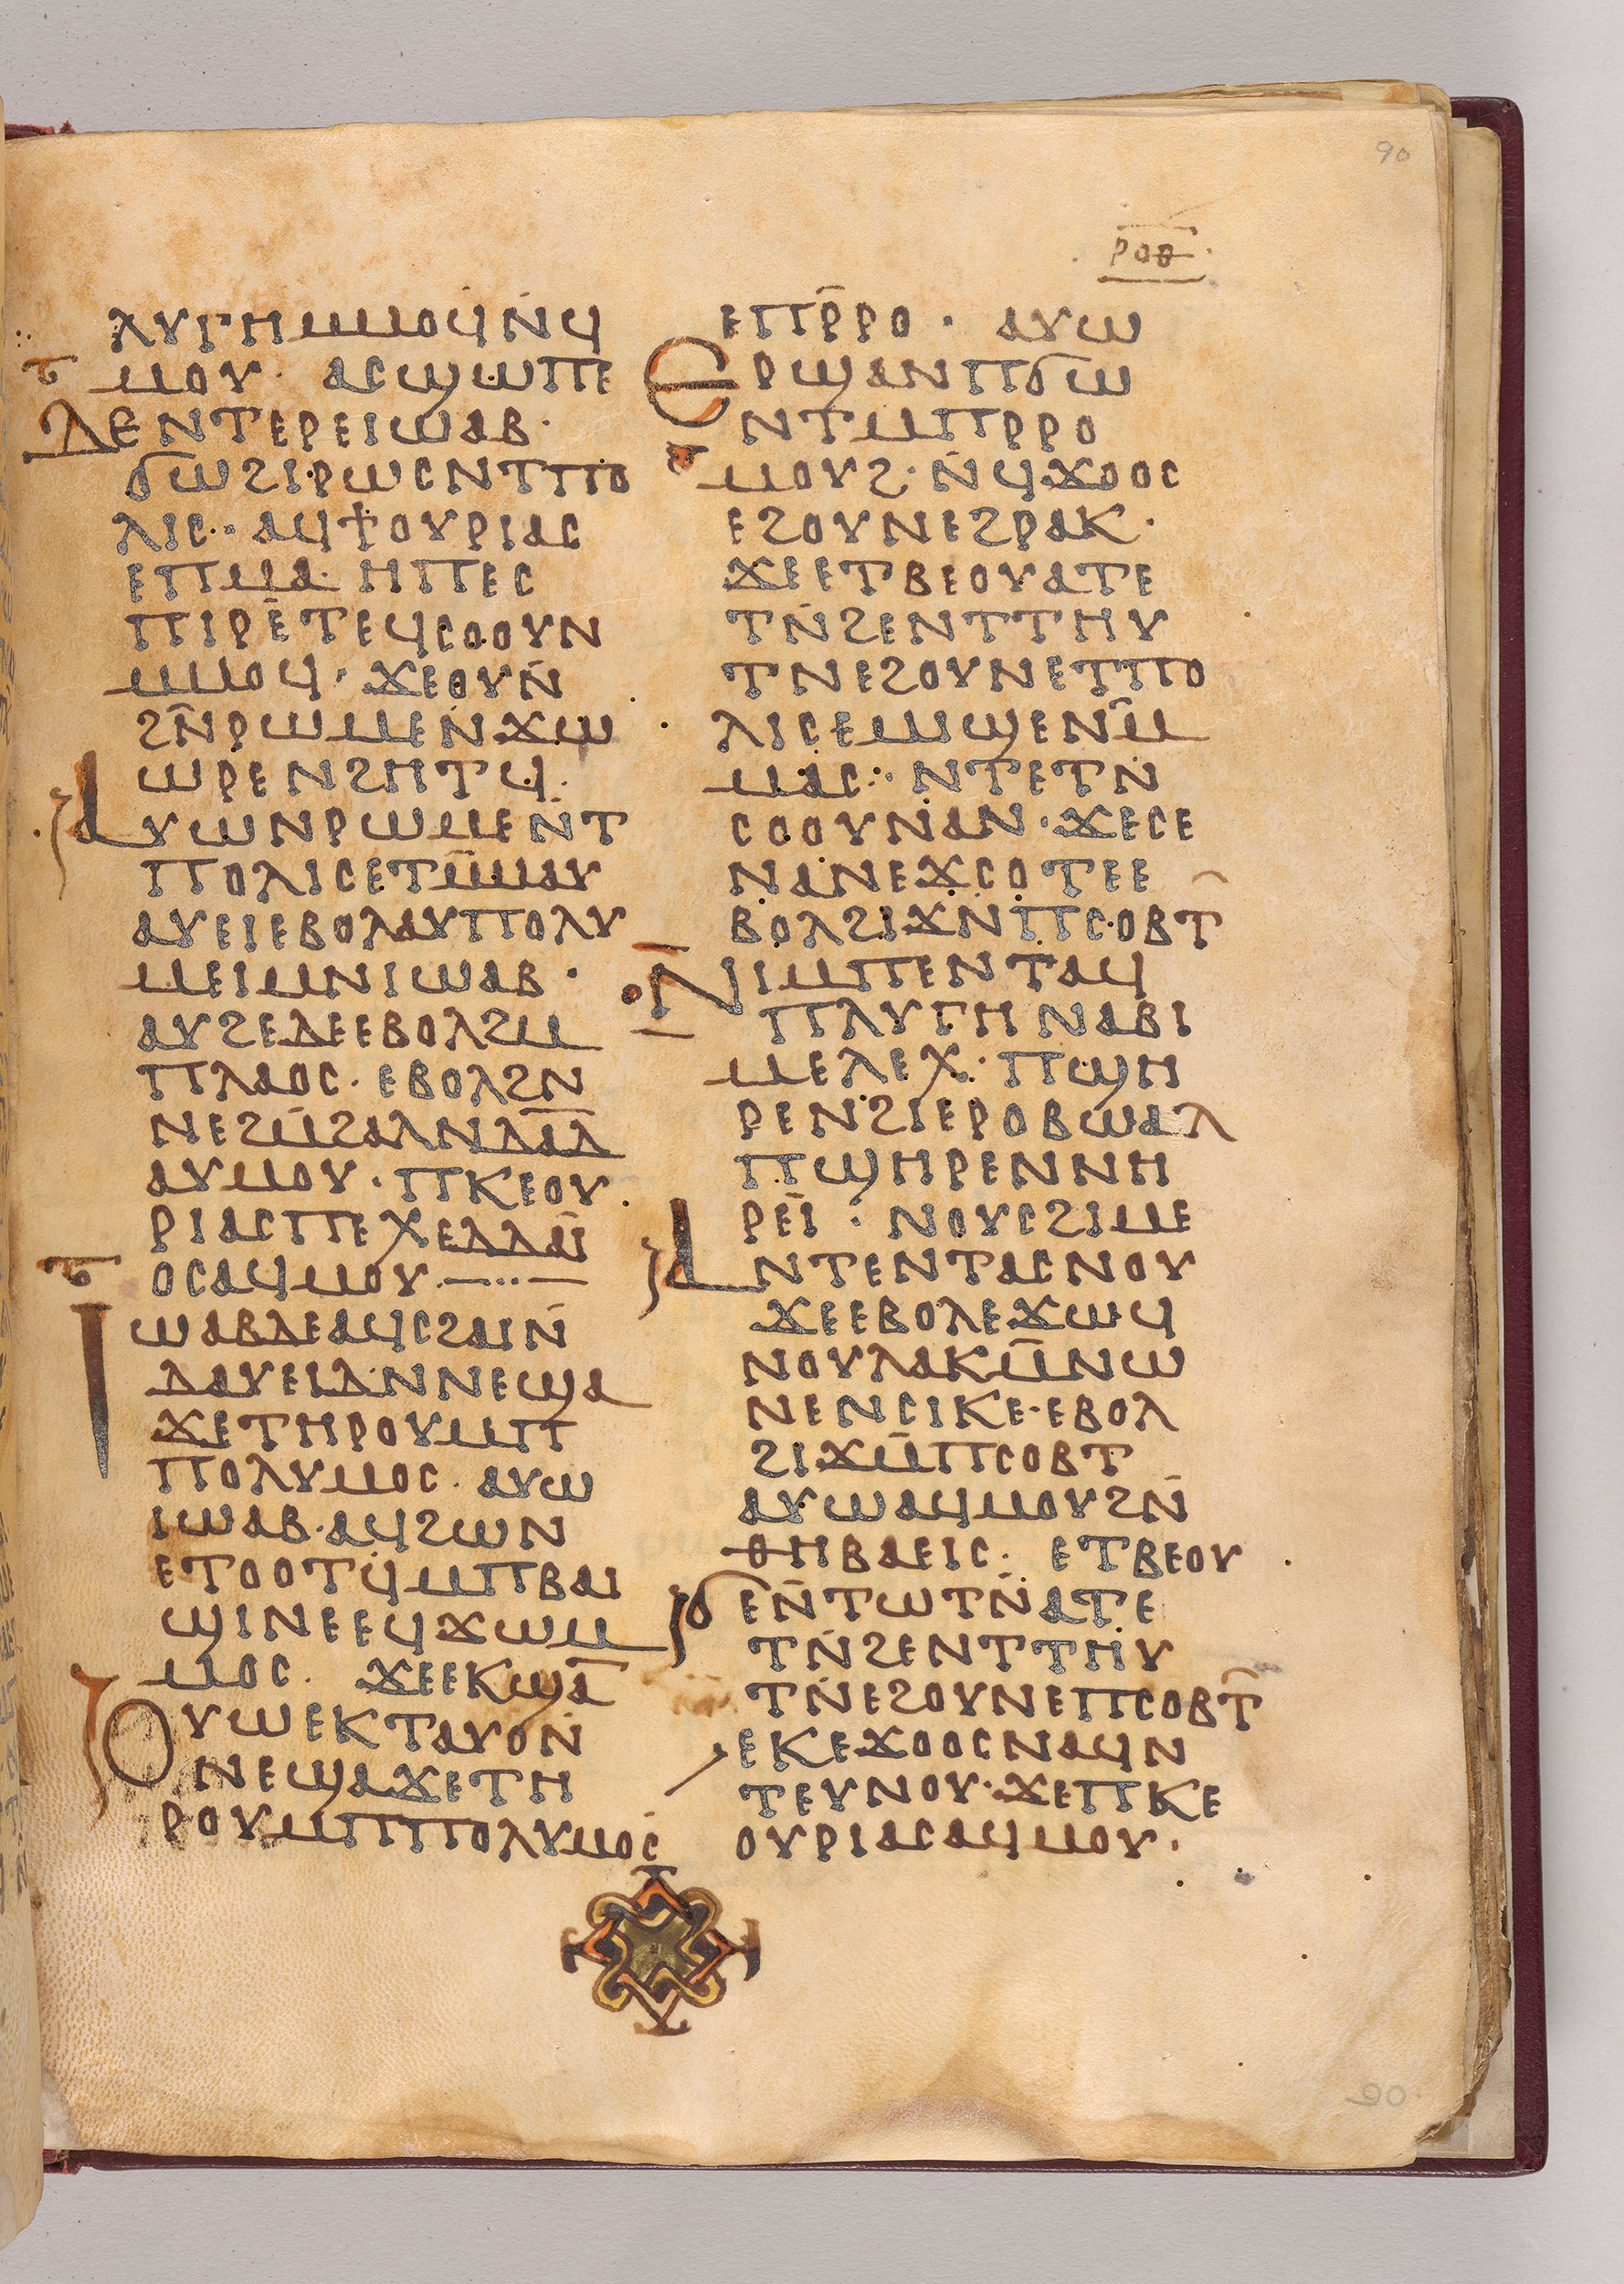 90
ⲣⲟⲑ
ⲗⲩⲅⲏⲙⲙⲟϥⲛ̄ϥ
ⲙⲟⲩ· ⲁⲥϣⲱⲡⲉ
ⲇⲉⲛⲧⲉⲣⲉⲓⲱⲁⲃ·
ϭⲱϩⲓⲣⲱⲥⲛⲧⲡⲟ
ⲗⲓⲥ· ⲁϥϯⲟⲩⲣⲓⲁⲥ
ⲉⲡⲙⲁ· ⲏⲡⲉⲥ
ⲡⲓⲣⲉ̄ⲧⲉϥⲥⲟⲟⲩⲛ
ⲙⲙⲟϥ· ϫⲉⲟⲩⲛ̄
ϩⲛ̄ⲣⲱⲙⲉⲛ̄ϫⲱ
ⲱⲣⲉⲛϩⲏⲧϥ·
ⲁⲩⲱⲛⲣⲱⲙⲉⲛ̄ⲧ
ⲡⲟⲗⲓⲥⲉⲧⲙ̄ⲙⲁⲩ
ⲁⲩⲉⲓⲉⲃⲟⲗⲁⲩⲡⲟⲗⲩ
ⲙⲉⲓⲙⲛⲓⲱⲁⲃ·
ⲁⲩϩⲉⲇⲉⲉⲃⲟⲗϩⲙ
ⲡⲗⲁⲟⲥ· ⲉⲃⲟⲗϩⲛ
ⲛⲉϩⲙ̄ϩⲁⲗⲛⲇⲁ̄ⲇ
ⲁⲩⲙⲟⲩ· ⲡⲕⲉⲟⲩ
ⲣⲓⲁⲥⲡⲉⲭⲉⲇⲇⲁⲓ
ⲟⲥⲁϥⲙⲟⲩ·—··—
ⲓⲱⲁⲃⲇⲉⲁϥⲥϩⲁⲓⲛ̄
ⲇⲁⲩⲉⲓⲇⲛⲛⲉϣⲁ
ϫⲉⲧⲏⲣⲟⲩⲙⲡ
ⲡⲟⲗⲩⲙⲟⲥ· ⲁⲩⲱ
ⲓⲱⲁⲃ·ⲁϥϩⲱⲛ
ⲉⲧⲟⲟⲧϥⲙⲡⲃⲁⲓ
ϣⲓⲛⲉⲉϥϫⲱⲙ
ⲙⲟⲥ· ϫⲉⲉⲕϣⲁ̄
ⲟⲩⲱⲉⲕⲧⲁⲩⲟⲛ̄
ⲛⲉϣⲁϫⲉⲧⲏ
ⲣⲟⲩⲙⲡⲡⲟⲗⲩⲙⲟⲥ
ⲉⲡⲣ̄ⲣⲟ· ⲁⲩⲱ
ⲉⲣϣⲁⲛⲡϭⲱ
ⲛⲧⲙⲡⲣⲣⲟ
ⲙⲟⲩϩ·ⲛ̄ϥϫⲟⲟⲥ
ⲉϩⲟⲩⲛⲉϩⲣⲁⲕ·
ϫⲉⲉⲧⲃⲉⲟⲩⲁⲧⲉ
ⲧⲛ̄ϩⲉⲛⲧⲧⲏⲩ
ⲧⲛⲉϩⲟⲩⲛⲉⲧⲡⲟ
ⲗⲓⲥⲉⲙⲓϣⲉⲛⲙ̄
ⲙⲁⲥ: ⲛⲧⲉⲧⲛ̄
ⲥⲟⲟⲩⲛⲁⲛ·ϫⲉⲥⲉ
ⲛⲁⲛⲉϫⲥⲟⲧⲉⲉ
ⲃⲟⲗϩⲓϫⲛ̄ⲡⲥⲟⲃⲧ
ⲛⲓⲙⲡⲉⲛⲧⲁϥ
ⲡⲗⲩⲅⲏⲛⲁⲃⲓ
ⲙⲉⲗⲉⲭ· ⲡϣⲏ
ⲣⲉⲛϩⲓⲉⲣⲟⲃⲱⲁⲗ
ⲡϣⲏⲣⲉⲛⲛⲏ
ⲣⲉⲓ̄· ⲛⲟⲩⲥϩⲓⲙⲉ
ⲁⲛⲧⲉⲛⲧⲁⲥⲛⲟⲩ
ϫⲉⲉⲃⲟⲗⲉϫⲱϥ
ⲛⲟⲩⲗⲁⲕⲙ̄ⲛⲱ
ⲛⲉⲛⲥⲓⲕⲉ·ⲉⲃⲟⲗ
ϩⲓϫⲙ̄ⲡⲥⲟⲃⲧ
ⲁⲩⲱⲁϥⲙⲟⲩϩⲛ̄
ⲑⲏⲃⲁⲉⲓⲥ· ⲉⲧⲃⲉⲟⲩ
ϭⲉⲛ̄ⲧⲱⲧⲛ̄ⲁⲧⲉ
ⲧⲛ̄ϩⲉⲛⲧⲧⲏⲩ
ⲧⲛ̄ⲉϩⲟⲩⲛⲉⲡⲥⲟⲃⲧ̄
ⲉⲕⲉϫⲟⲟⲥⲛⲁϥⲛ
ⲧⲉⲩⲛⲟⲩ·ϫⲉⲡⲕⲉ
ⲟⲩⲣⲓⲁⲥⲁϥⲙⲟⲩ·